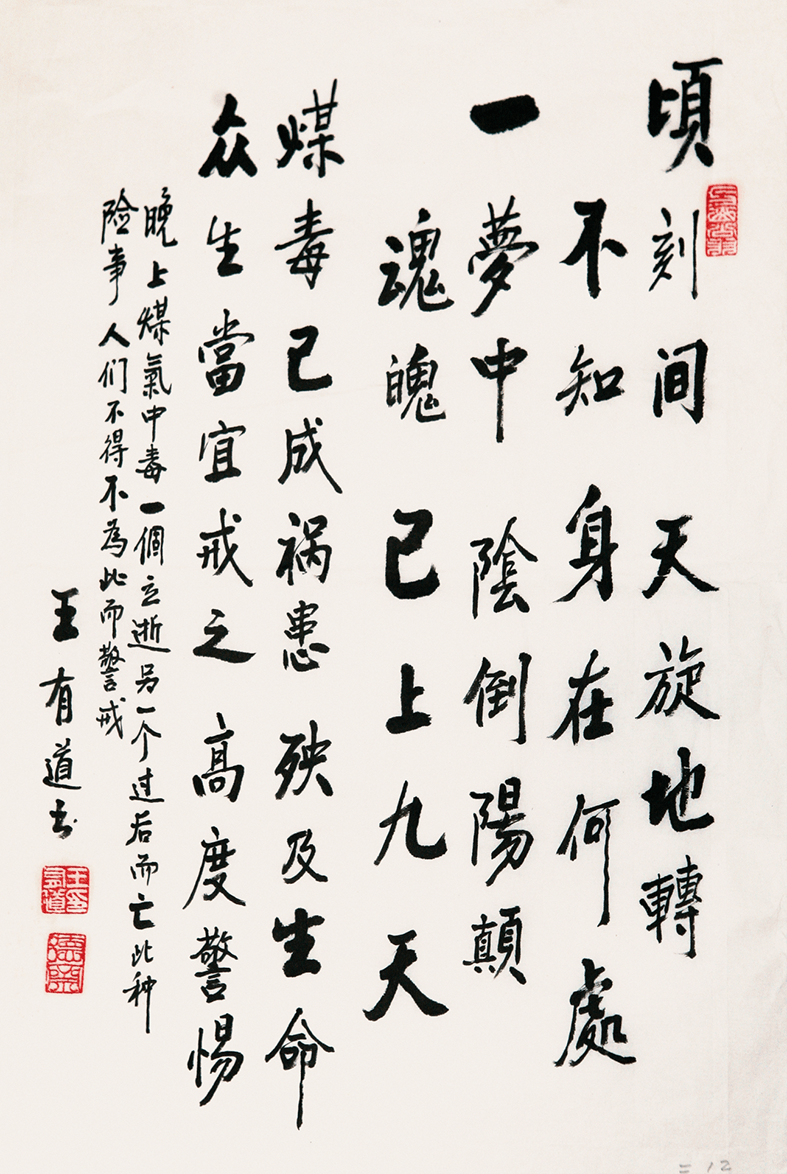 頃刻间 天旋地轉
不知 身在何處
一夢中 陰倒陽顛
魂魄 已上九天
煤毒已成祸患 殃及生命
众生當宜戒之 高度警惕
晚上煤氣中毒一個立逝另一个过后而亡此种
险事人们不得不為此而警戒
王有道书
王印有道
= 12